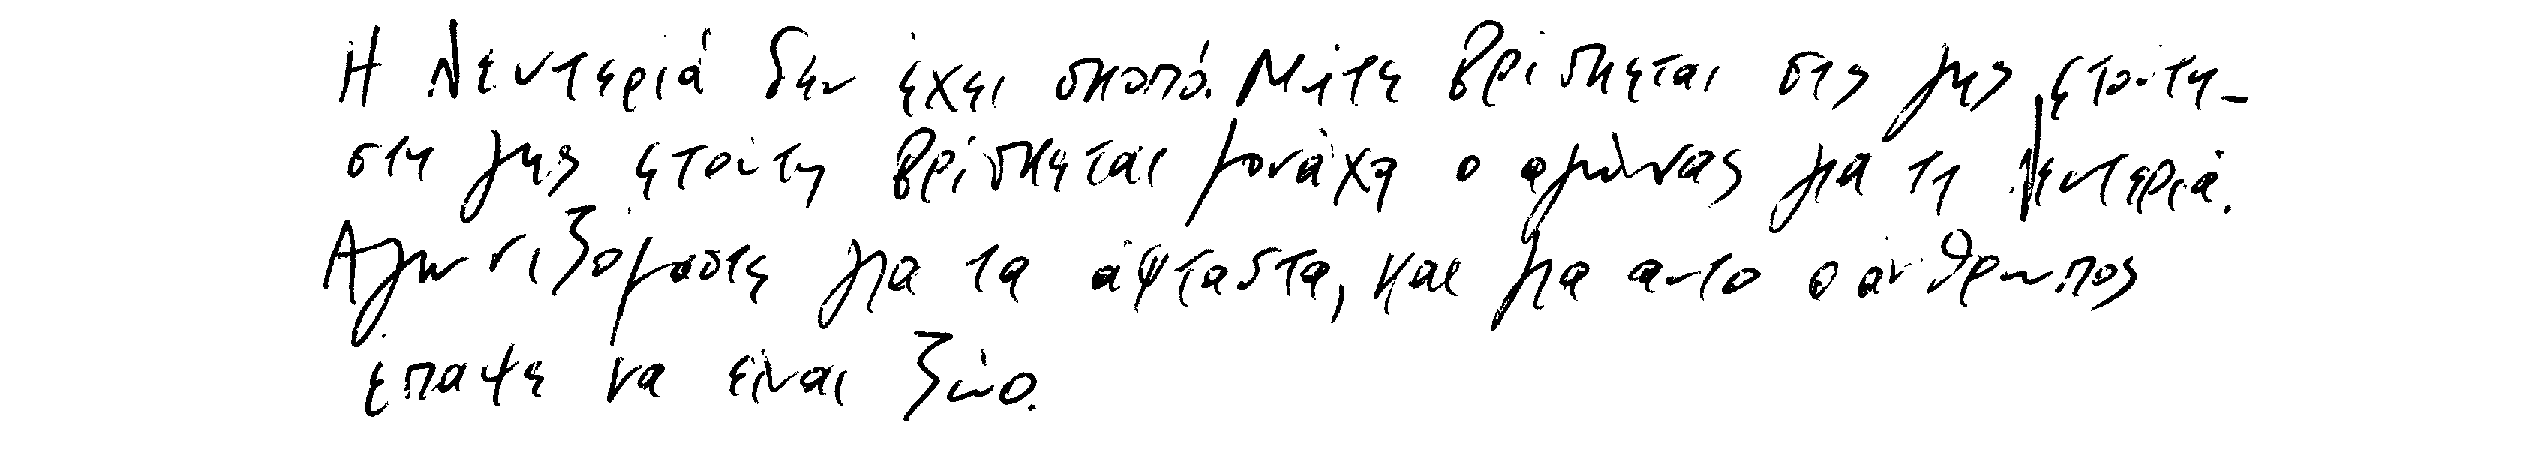 Η λευτεριά δεν έχει σκοπό. Μήτε βρίσκεται στης γης ετούτη-
στη γης ετούτη βρίσκεται μονάχα ο αγώνας για τη λευτεριά.
Αγωνιζόμαστε για τα άφταστα, και για αυτο ο άνθρωπος
έπαψε να είναι ζώο.